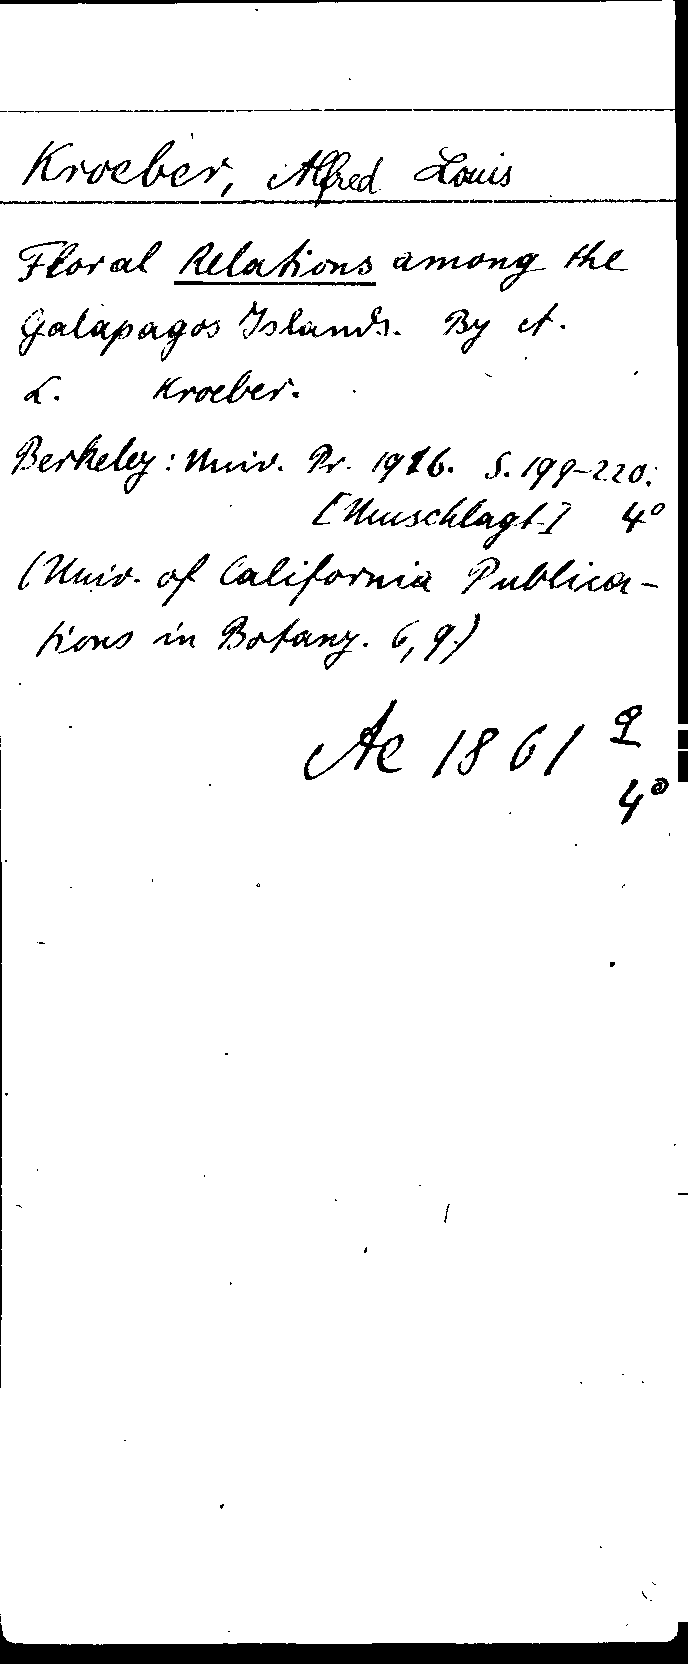 Kroeber, Alfred Louis
Floral Relations among the
Galapagos Islands. By A.
L. Kroeber.
Berkeley: Univ. Pr. 1916. S. 199-220.
[Umschlagt.] 4°
(Univ. of California Publica-
tions in Botany. 6, 9.)
Ae 1861 9
4°